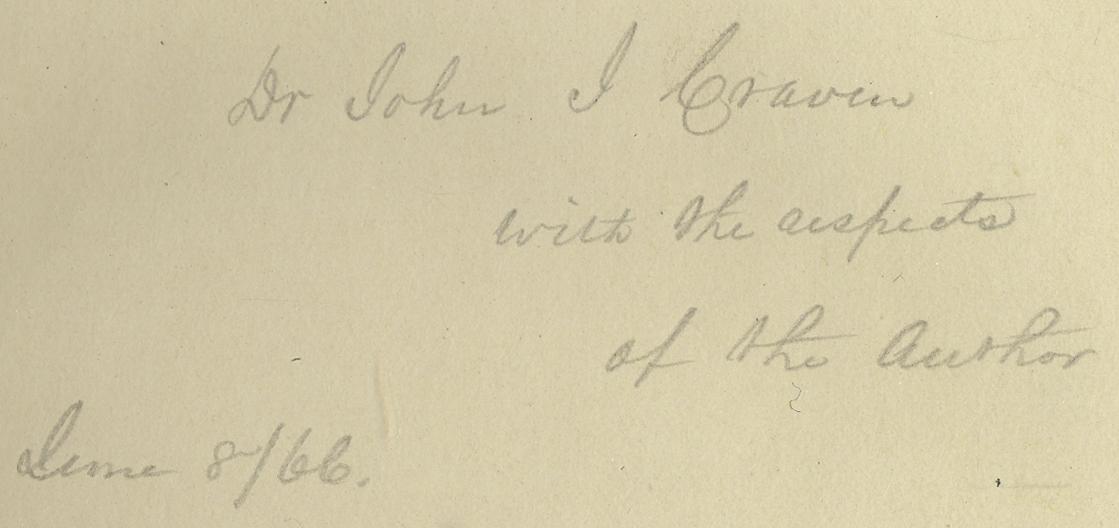 Dr John J Craven
with the respects
of the Author
June 8/66.